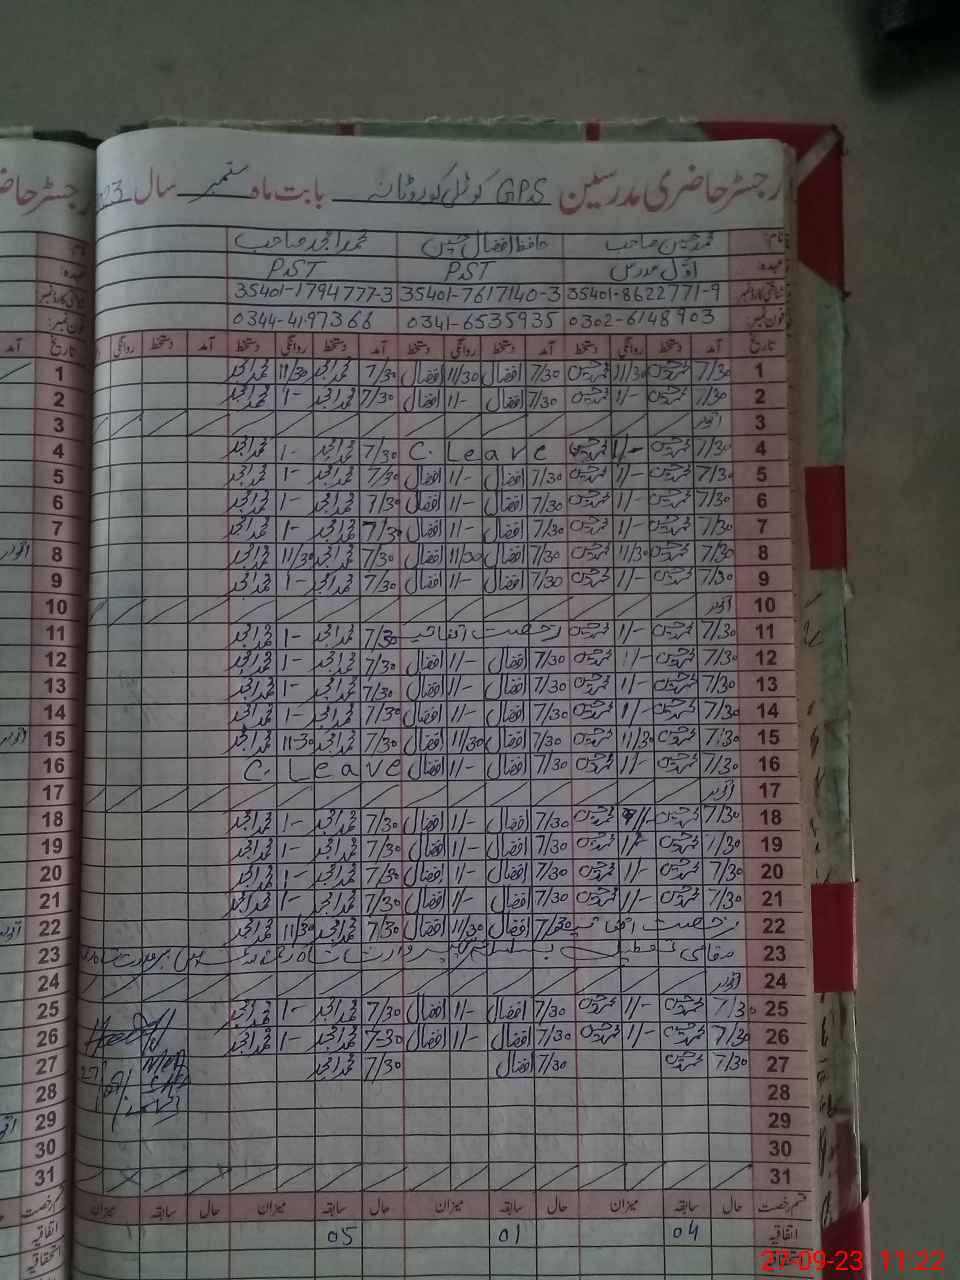 رجسٹر حاضری مدرسین GPS کوٹلی کوروٹانہ بابت ماہ ستمبر سال 2023
نام: محمد حسین صاحب حافظ افضال حسین محمد امجد صاحب
عہدہ: اول مدرس PST PST
شناختی کارڈ نمبر 35401-8622771-9 35401-7617140-3 35401-1794777-3
فون نمبر: 0302-6148903 0341-6535935 0344-4197366
تاریخ آمد دستخط روانگی دستخط آمد دستخط روانگی دستخط آمد دستخط روانگی دستخط آمد دستخط روانگی
1 7/30 محمد حسین 11/30 محمد حسین 7/30 افضال 11/30 افضال 7/30 محمد امجد 11/30 محمد امجد
2 7/30 محمد حسین 1/- محمد حسین 7/30 افضال 1/- افضال 7/30 محمد امجد 1- محمد امجد
3 اتوار
4 7/30 محمد حسین 1/- محمد حسین C. Leave 7/30 محمد امجد 1- محمد امجد
5 7/30 محمد حسین 1/- محمد حسین 7/30 افضال 1/- افضال 7/30 محمد امجد 1- محمد امجد
6 7/30 محمد حسین 1/- محمد حسین 7/30 افضال 1/- افضال 7/30 محمد امجد 1- محمد امجد
7 7/30 محمد حسین 1/- محمد حسین 7/30 افضال 1/- افضال 7/30 محمد امجد 1- محمد امجد
8 7/30 محمد حسین 11/30 محمد حسین 7/30 افضال 11/30 افضال 7/30 محمد امجد 11/30 محمد امجد
9 7/30 محمد حسین 1/- محمد حسین 7/30 افضال 1/- افضال 7/30 محمد امجد 1- محمد امجد
10 اتوار
11 7/30 محمد حسین 1/- محمد حسین رخصت اتفاقیہ 7/30 محمد امجد 1- محمد امجد
12 7/30 محمد حسین 1/- محمد حسین 7/30 افضال 1/- افضال 7/30 محمد امجد 1- محمد امجد
13 7/30 محمد حسین 1/- محمد حسین 7/30 افضال 1/- افضال 7/30 محمد امجد 1- محمد امجد
14 7/30 محمد حسین 1/- محمد حسین 7/30 افضال 1/- افضال 7/30 محمد امجد 1- محمد امجد
15 7/30 محمد حسین 11/30 محمد حسین 7/30 افضال 11/30 افضال 7/30 محمد امجد 11-30 محمد امجد
16 7/30 محمد حسین 1/- محمد حسین 7/30 افضال 1/- افضال C. Leave
17 اتوار
18 7/30 محمد حسین 1/- محمد حسین 7/30 افضال 1/- افضال 7/30 محمد امجد 1- محمد امجد
19 7/30 محمد حسین 1/- محمد حسین 7/30 افضال 1/- افضال 7/30 محمد امجد 1- محمد امجد
20 7/30 محمد حسین 1/- محمد حسین 7/30 افضال 1/- افضال 7/30 محمد امجد 1- محمد امجد
21 7/30 محمد حسین 1/- محمد حسین 7/30 افضال 1/- افضال 7/30 محمد امجد 1- محمد امجد
22 رخصت اتفاقیہ 7/30 افضال 11/30 افضال 7/30 محمد امجد 11/30 محمد امجد
23 مقامی تعطیل بسلسلہ
24 اتوار
25 7/30 محمد حسین 1/- محمد حسین 7/30 افضال 1/- افضال 7/30 محمد امجد 1- محمد امجد
26 7/30 محمد حسین 1/- محمد حسین 7/30 افضال 1/- افضال 7-30 محمد امجد 1- محمد امجد
27 7/30 محمد حسین 7/30 افضال 7/30 محمد امجد
28
29
30
31
قسم رخصت حال سابقہ میزان حال سابقہ میزان حال سابقہ میزان حال سابقہ میزان
اتفاقیہ 04 01 05
استحقاقیہ
27-09-23 11:22